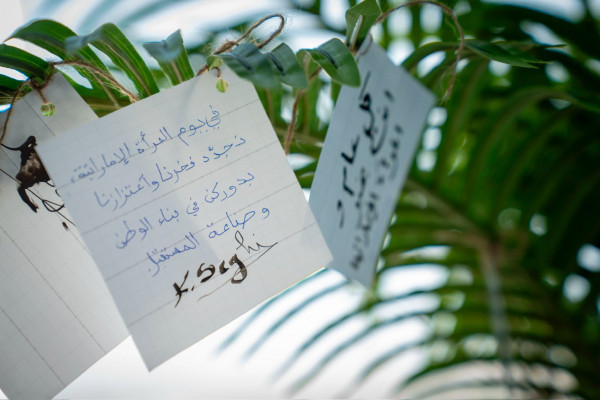 في يوم المرأة الإماراتية،
نجدّد فخرنا واعتزازنا
بدوركن في بناء الوطن
وصناعة المستقبل
K. Seghi
كل عام و